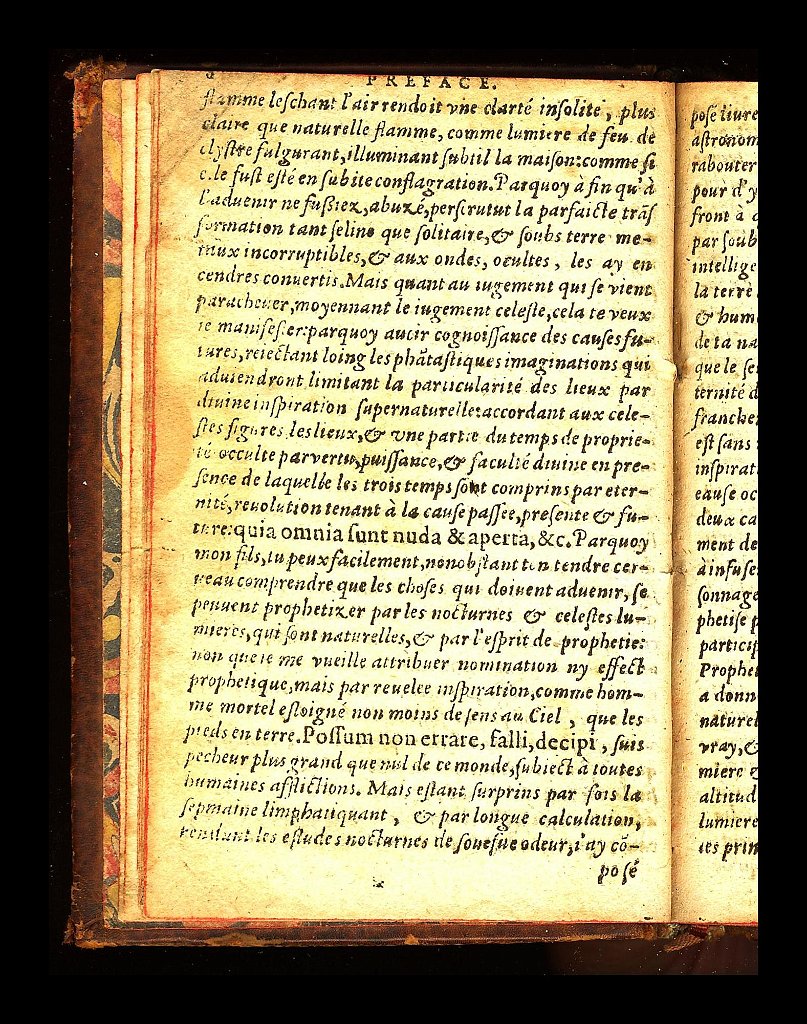 PREFACE.
flamme leschant l'air rendoit vne clarté insolite, plus
claire que naturelle flamme, comme lumiere de feu de
clystre fulgurant, illuminant subtil la maison: comme si
elle fust esté en subite conflagration. Parquoy à fin qu'à
l'aduenir ne fußiez, abuzé, perscrutut la parfaicte trãs
formation tant seline que solitaire, & soubs terre me-
taux incorruptibles, & aux ondes, ocultes, les ay en
cendres conuertis. Mais quant au iugement qui se vient
paracheuer, moyennant le iugement celeste, cela te veux
ie manifester: parquoy auoir cognoissance des causes fu-
tures, reiectant loing les phãtastiques imaginations qui
aduiendront, limitant la particularité des lieux par
diuine inspiration supernaturelle: accordant aux cele-
stes figures les lieux, & vne partie du temps de proprie-
té occulte par vertu, puissance, & faculté diuine en pre-
sence de laquelle les trois temps sont comprins par eter-
nité, reuolution tenant à la cause passee, presente & fu-
ture: quia omnia sunt nuda & aperta, &c. Parquoy
mon fils, tu peux facilement, nonobstant ton tendre cer-
ueau comprendre que les choses qui doiuent aduenir, se
peuuent prophetizer par les nocturnes & celestes lu-
mieres, qui sont naturelles, & par l'esprit de prophetie:
non que ie me vueille attribuer nomination ny effect
prophetique, mais par reuelee inspiration, comme hom-
me mortel esloigné non moins de sens au Ciel, que les
pieds en terre. Possum non errare, falli, decipi, suis
pecheur plus grand que nul de ce monde, subiect à toutes
humaines afflictions. Mais estant surprins par fois la
sepmaine limphatiquant, & par longue calculation,
rendant les estudes nocturnes de soueſue odeur, i'ay cõ-
posé
posé liure
astronom
rabouter
pour d'y
front à
par soub
intellige
la terre
& hum
de ta na
que le se
ternité d
franche
est sans
inspirat
cause oc
deux ca
ment de
à infuse
sonnage
phetise p
particip
Prophe
a donn
naturel
vray, &
miere
altitud
lumiere
ces prin